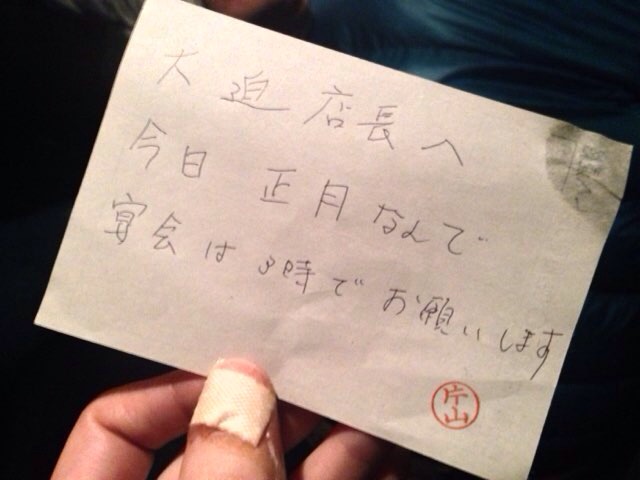 大迫店長へ
今日 正月なんで
宴会は3時でお願いします
片山